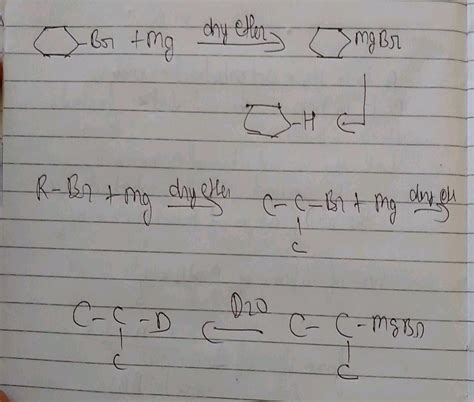 -Br + Mg dry ether MgBr
-H
R-Br + Mg dry ether C-C-Br + Mg dry eth
C
C-C-D D2O C-C-MgBr
C C